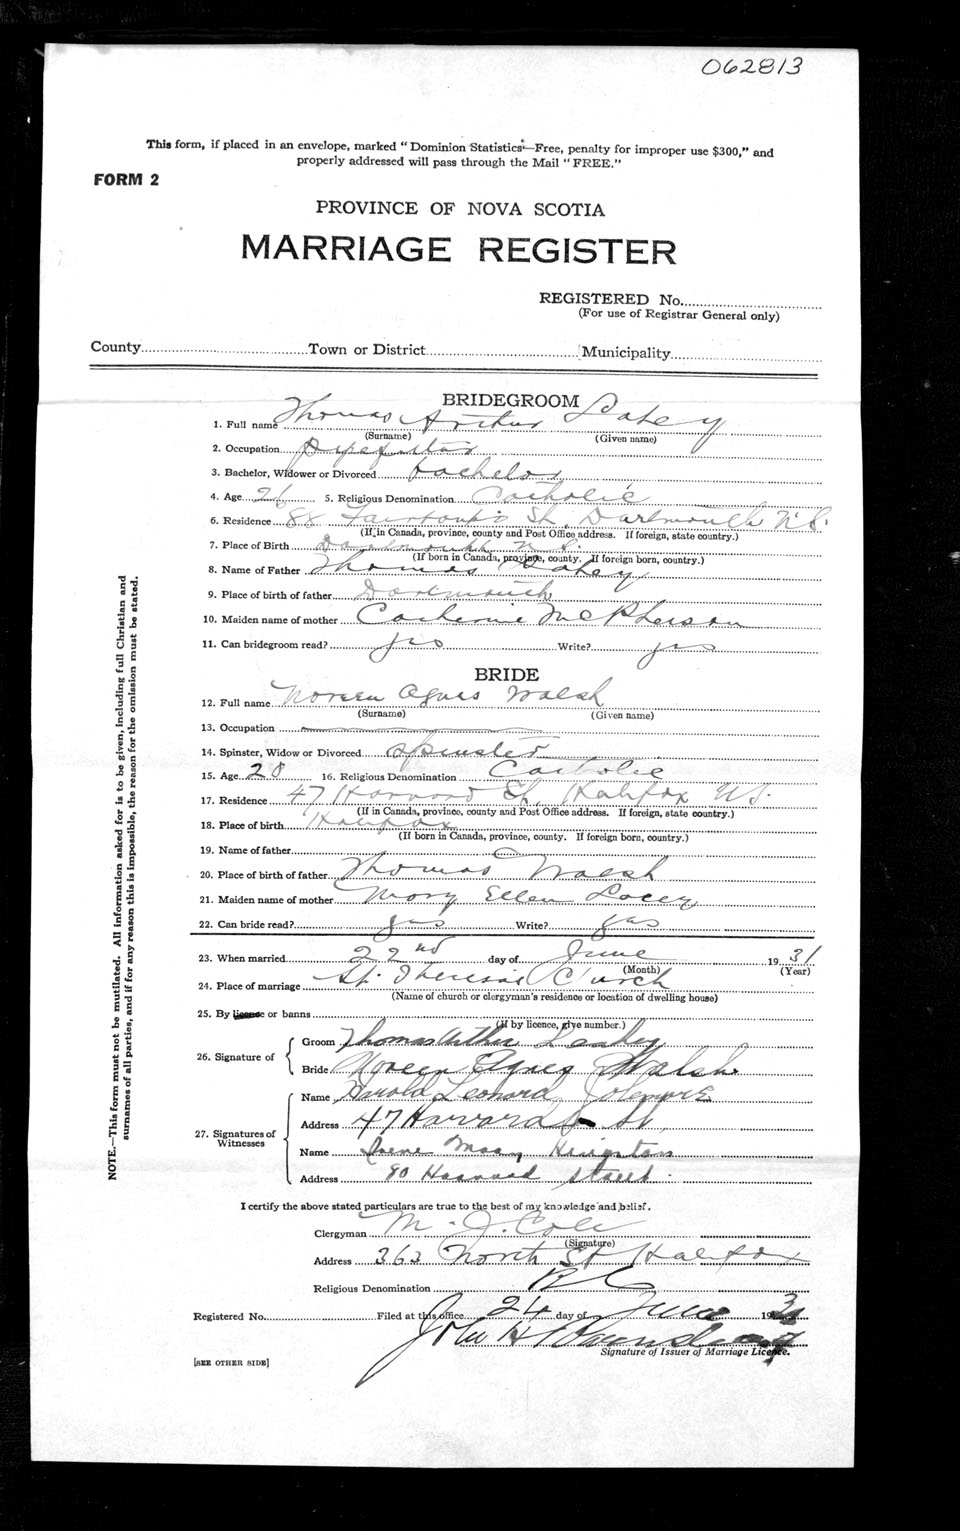 062813
This form, if placed in an envelope, marked "Dominion Statistics—Free, penalty for improper use $300," and
properly addressed will pass through the Mail "FREE."
FORM 2
PROVINCE OF NOVA SCOTIA
MARRIAGE REGISTER
REGISTERED No.
(For use of Registrar General only)
County Town or District Municipality
BRIDEGROOM
1. Full name Thomas Arthur Lahey
(Surname) (Given name)
2. Occupation pipefitter
3. Bachelor, Widower or Divorced bachelor
4. Age 26 5. Religious Denomination Catholic
6. Residence 88 St, Dartmouth N.S.
(If in Canada, province, county and Post Office address. If foreign, state country.)
7. Place of Birth Dartmouth N.S.
(If born in Canada, province, county. If foreign born, country.)
8. Name of Father Thomas Lahey
9. Place of birth of father Dartmouth
10. Maiden name of mother Catherine McPherson
11. Can bridegroom read? yes Write? yes
BRIDE
12. Full name Noreen Agnes Walsh
(Surname) (Given name)
13. Occupation
14. Spinster, Widow or Divorced Spinster
15. Age 28 16. Religious Denomination Catholic
17. Residence 47 Harvard St, Halifax N.S.
(If in Canada, province, county and Post Office address. If foreign, state country.)
18. Place of birth Halifax
(If born in Canada, province, county. If foreign born, country.)
19. Name of father
20. Place of birth of father Thomas Walsh
21. Maiden name of mother Mary Ellen Lacey
22. Can bride read? yes Write? yes
23. When married 22nd day of June 1931
(Month) (Year)
24. Place of marriage St. Theresa's Church
(Name of church or clergyman's residence or location of dwelling house)
25. By license or banns
(If by licence, give number.)
26. Signature of Groom Thomas Arthur Leahey
Bride Noreen Agnes Walsh
27. Signatures of Witnesses
Name Harold Leonard
Address 47 Harvard St.
Name Irene Mary
Address 80 Harvard Street
I certify the above stated particulars are true to the best of my knowledge and belief.
Clergyman M. J. Cole
(Signature)
Address 363 North St Halifax
Religious Denomination RC
Registered No. Filed at this office 24 day of June 193
John H
Signature of Issuer of Marriage Licence.
[SEE OTHER SIDE]
NOTE.—This form must not be mutilated. All information asked for is to be given, including full Christian and
surnames of all parties, and if for any reason this is impossible, the reason for the omission must be stated.